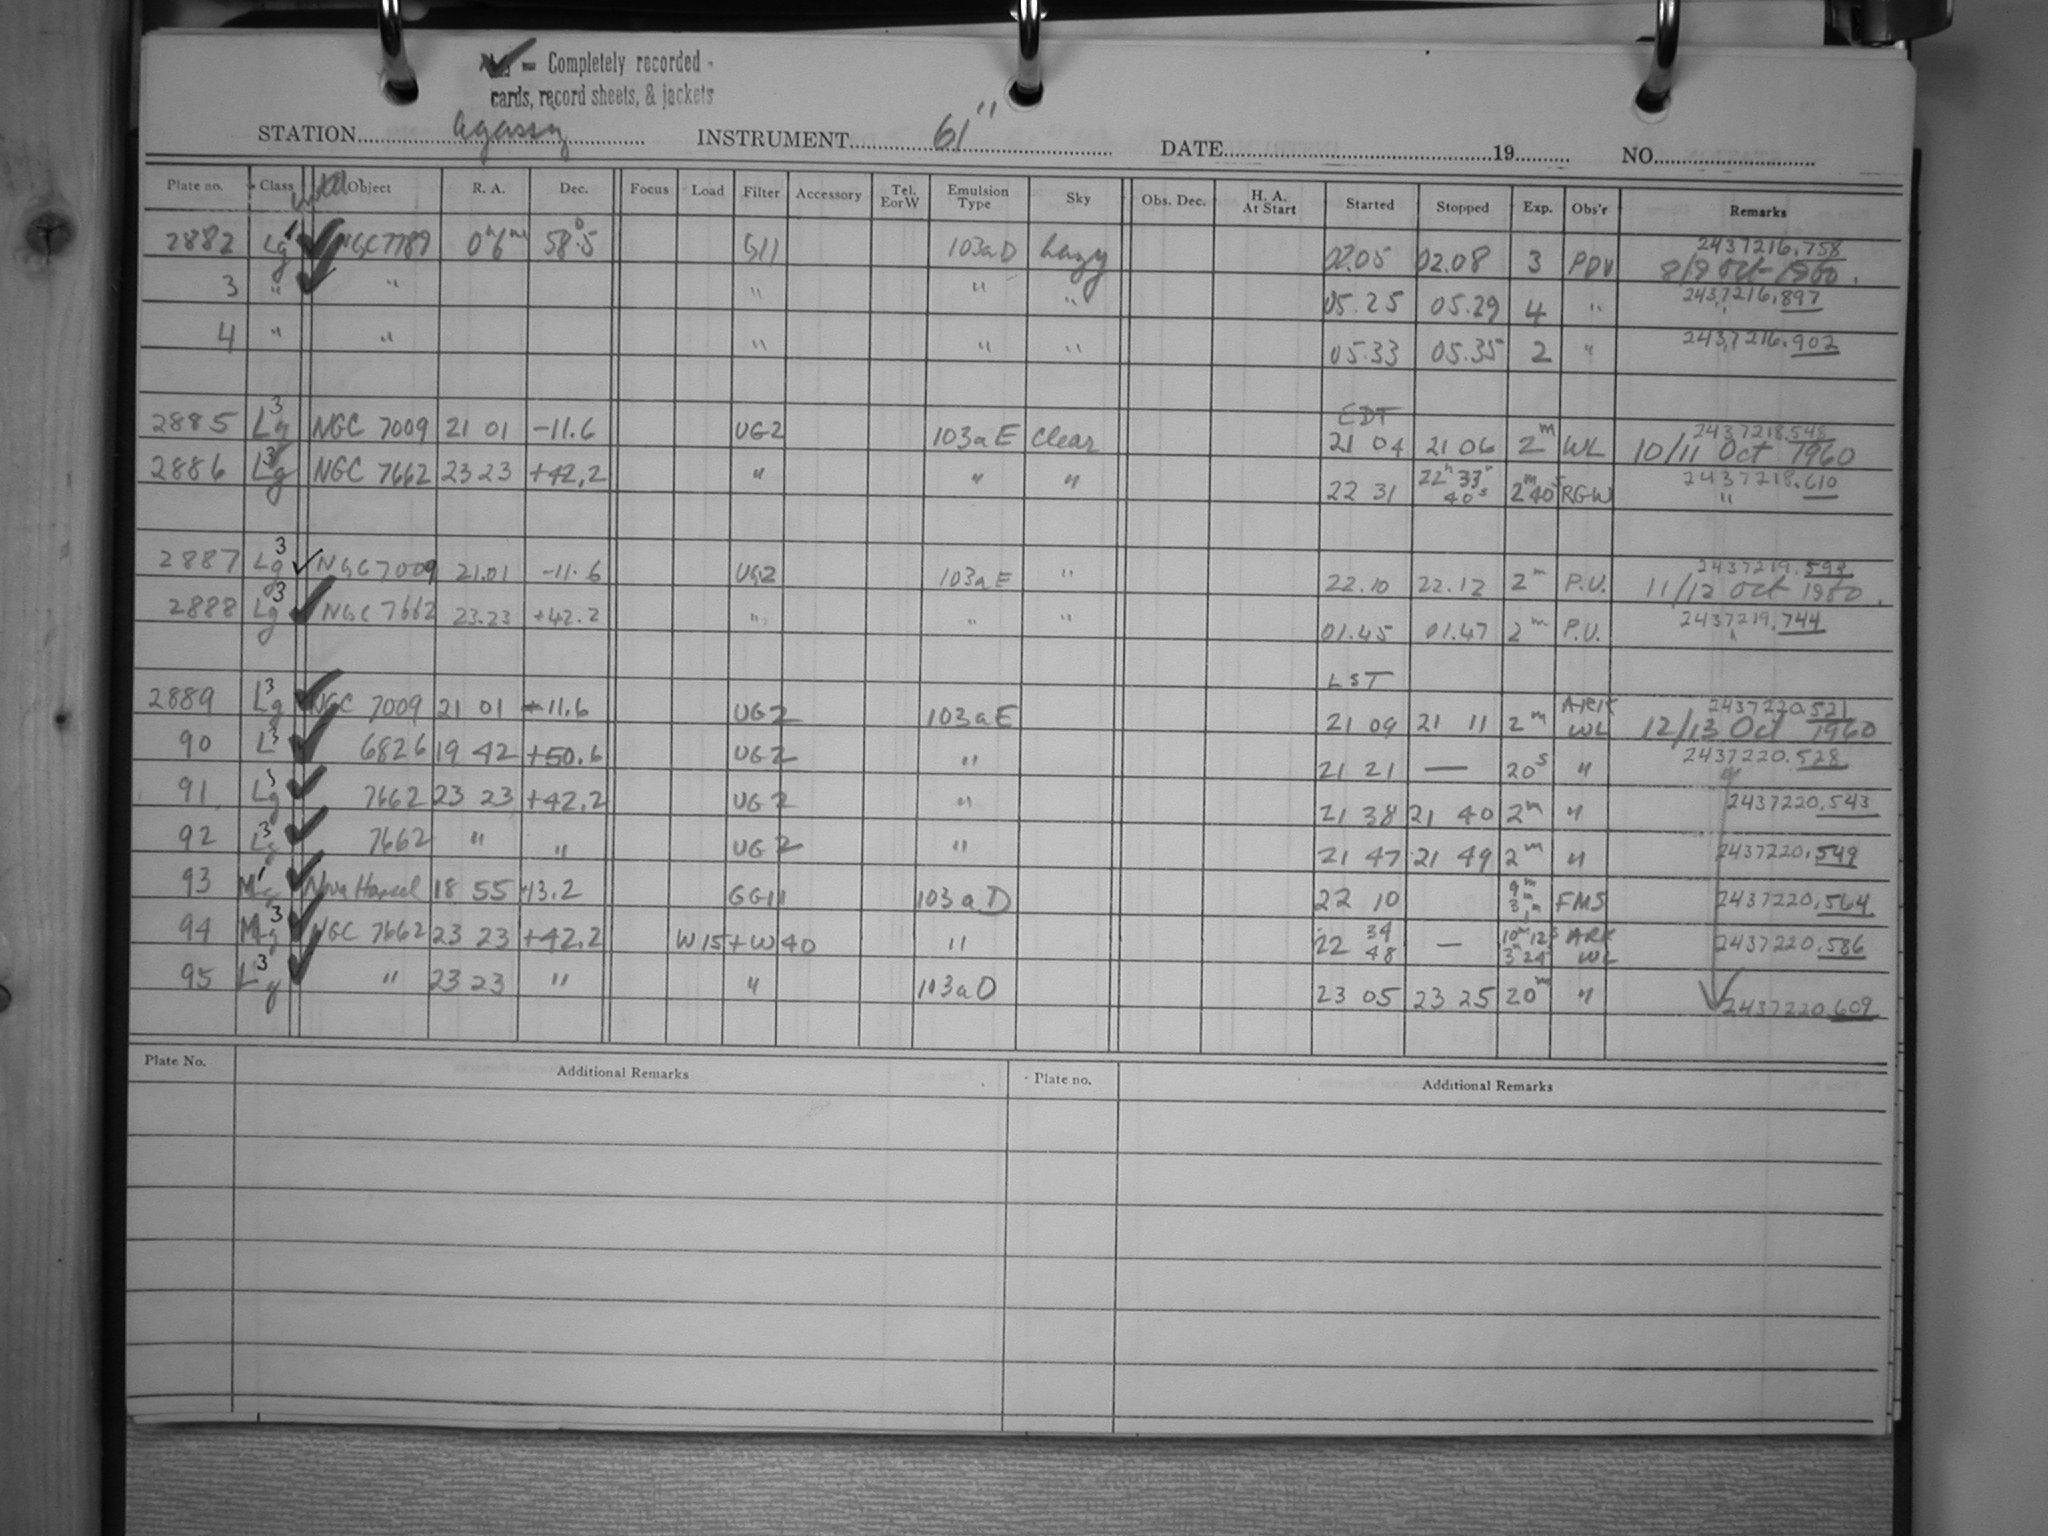 ✓ = Completely recorded -
cards, record sheets, & jackets
STATION Agassiz INSTRUMENT 61" DATE 19 NO.
Plate no. Class Object R. A. Dec. Focus Load Filter Accessory Tel. EorW Emulsion Type Sky Obs. Dec. H. A. At Start Started Stopped Exp. Obs'r Remarks
2882 Lg1 ✓ NGC 7789 0h6m 58°.5 G11 103aD hazy 02.05 02.08 3 PDV 2437216.758 8/9 Oct-1960.
3 " ✓ " " " " 05.25 05.29 4 " 2437216.897 "
4 " " " " " 05.33 05.35 2 " 2437216.902
EDT
2885 Lg3 NGC 7009 21 01 -11.6 UG2 103aE Clear 21 04 21 06 2m WL 2437218.548 10/11 Oct 1960
2886 Lg3 NGC 7662 23 23 +42.2 " " " 22 31 22h 33m 40s 2m40s RGW 2437218.610 "
2887 Lg3 ✓ NGC 7009 21.01 -11.6 UG2 103aE " 22.10 22.12 2m P.V. 2437219.594 11/12 Oct 1960.
2888 Lg3 ✓ NGC 7662 23.23 +42.2 " " " 01.45 01.47 2m P.V. 2437219.744
LST
2889 Lg3 ✓ NGC 7009 21 01 -11.6 UG2 103aE 21 09 21 11 2m ARK WL 2437220.521 12/13 Oct 1960
90 L3 ✓ 6826 19 42 +50.6 UG2 " 21 21 — 20s " 2437220.528 "
91 Lg3 ✓ 7662 23 23 +42.2 UG2 " 21 38 21 40 2m " 2437220.543
92 Lg3 ✓ 7662 " " UG2 " 21 47 21 49 2m " 2437220.549
93 Mg1 ✓ Nova Hassel 18 55 +13.2 GG11 103aD 22 10 9m 3m FMS 2437220.564
94 Mg3 ✓ NGC 7662 23 23 +42.2 W15+W40 " 22 34 48 — 10m12s 3m24s ARK WL 2437220.586
95 Lg3 ✓ " 23 23 " " 103aD 23 05 23 25 20m " 2437220.609
Plate No. Additional Remarks Plate no. Additional Remarks